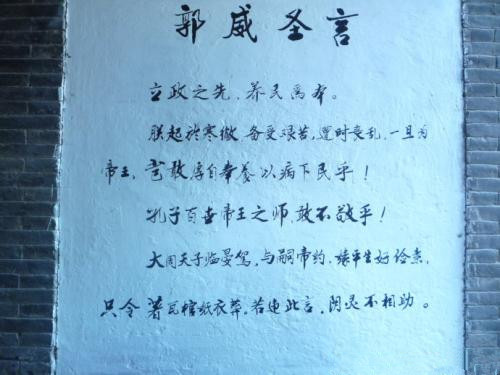 郭威圣言
立政之先，养民为本。
朕起於寒微，备受艰苦，遭时丧乱，一旦为
帝王，岂敢厚自奉养以病下民乎！
孔子百世帝王之师，敢不敬乎！
大周天子临晏驾，与嗣帝约，缘平生好俭素，
只令著瓦棺纸衣葬。若违此言，阴灵不相助。